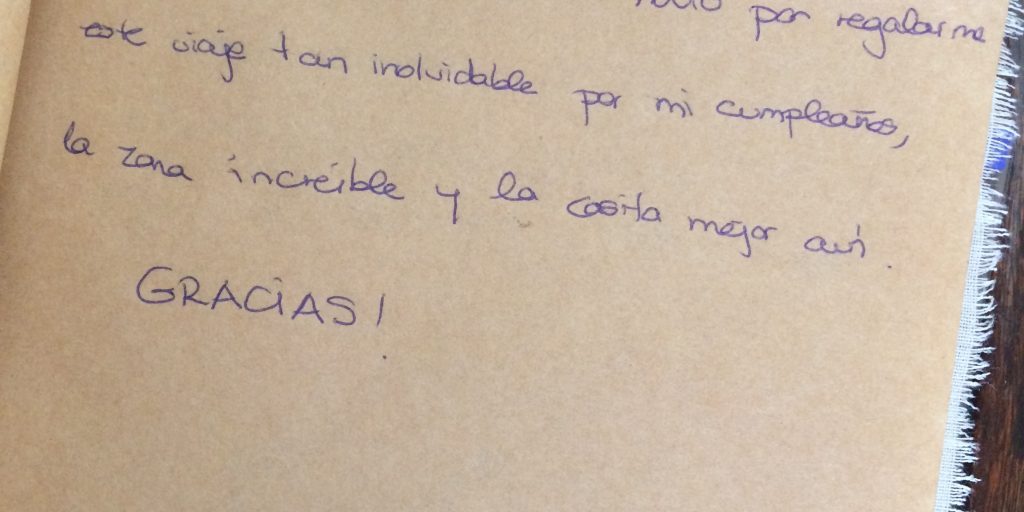 por regalarme
este viaje tan inolvidable por mi cumpleaños,
la zona increíble y la casita mejor aún.
GRACIAS!